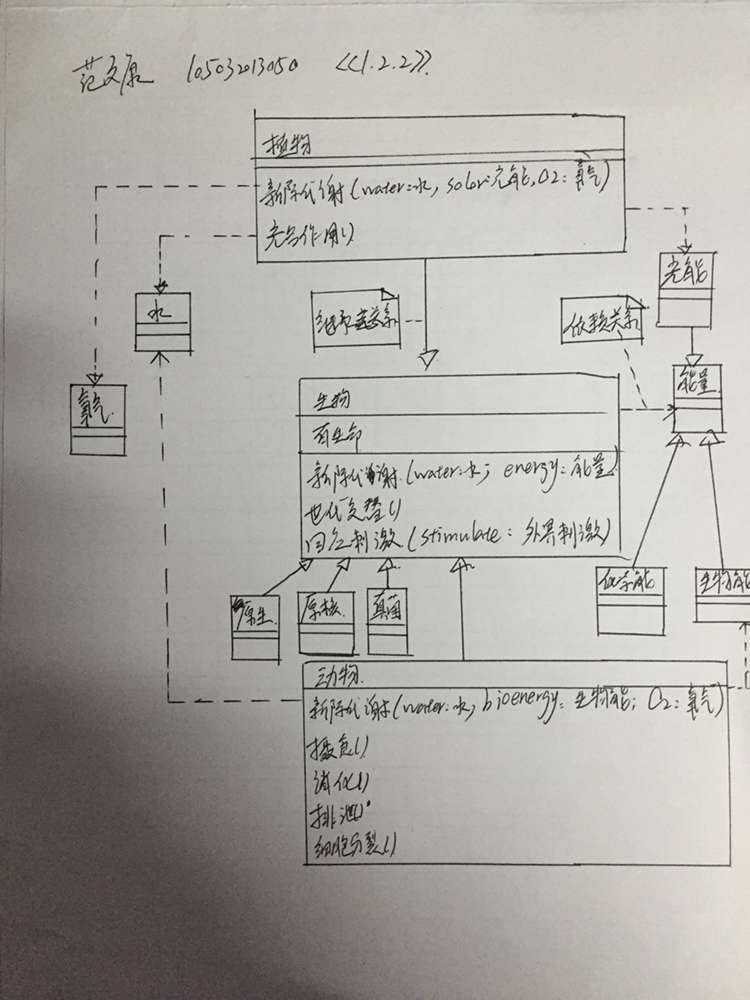 范文康 105032013050 <<1.2.2>>
植物
新陈代谢(water:水, solar:光能, O2:氧气)
光合作用()
光能
水
继承关系
依赖关系
能量
氧气
生物
有生命
新陈代谢(water:水; energy:能量)
世代交替()
回应刺激(stimulate:外界刺激)
原生
原核
真菌
化学能
生物能
动物
新陈代谢(water:水, bioenergy:生物能; O2:氧气)
摄食()
消化()
排泄()
细胞分裂()